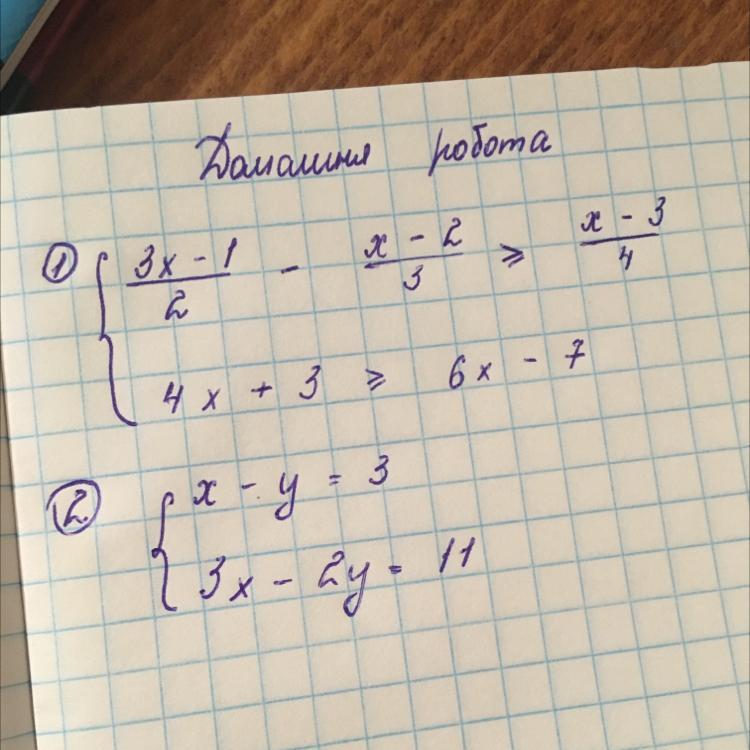 Домашня робота
① { (3x - 1)/2 - (x - 2)/3 ⩾ (x - 3)/4
4x + 3 ⩾ 6x - 7
② { x - y = 3
3x - 2y = 11